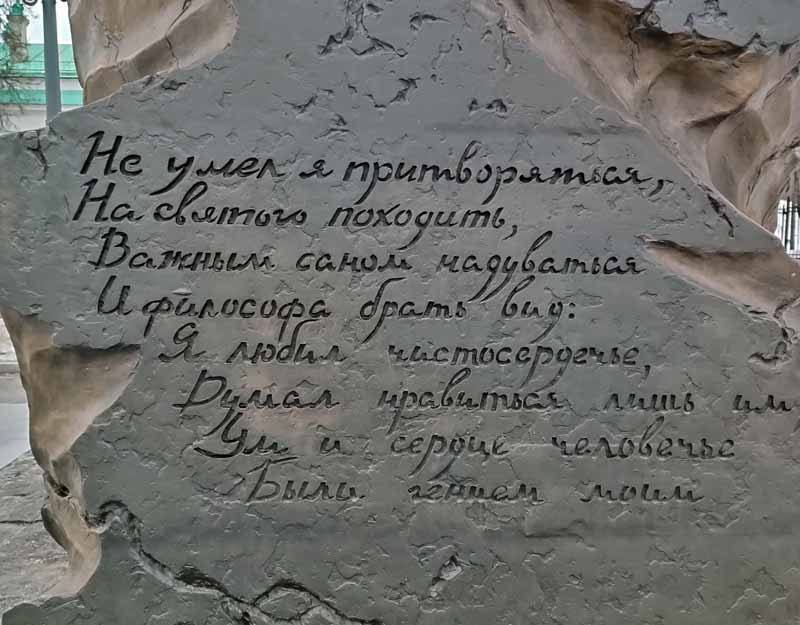 Не умел я притворяться,
На святого походить,
Важным саном надуваться
И философа брать вид:
Я любил чистосердечье,
Думал нравиться лишь им,
Ум и сердце человечье
Были гением моим